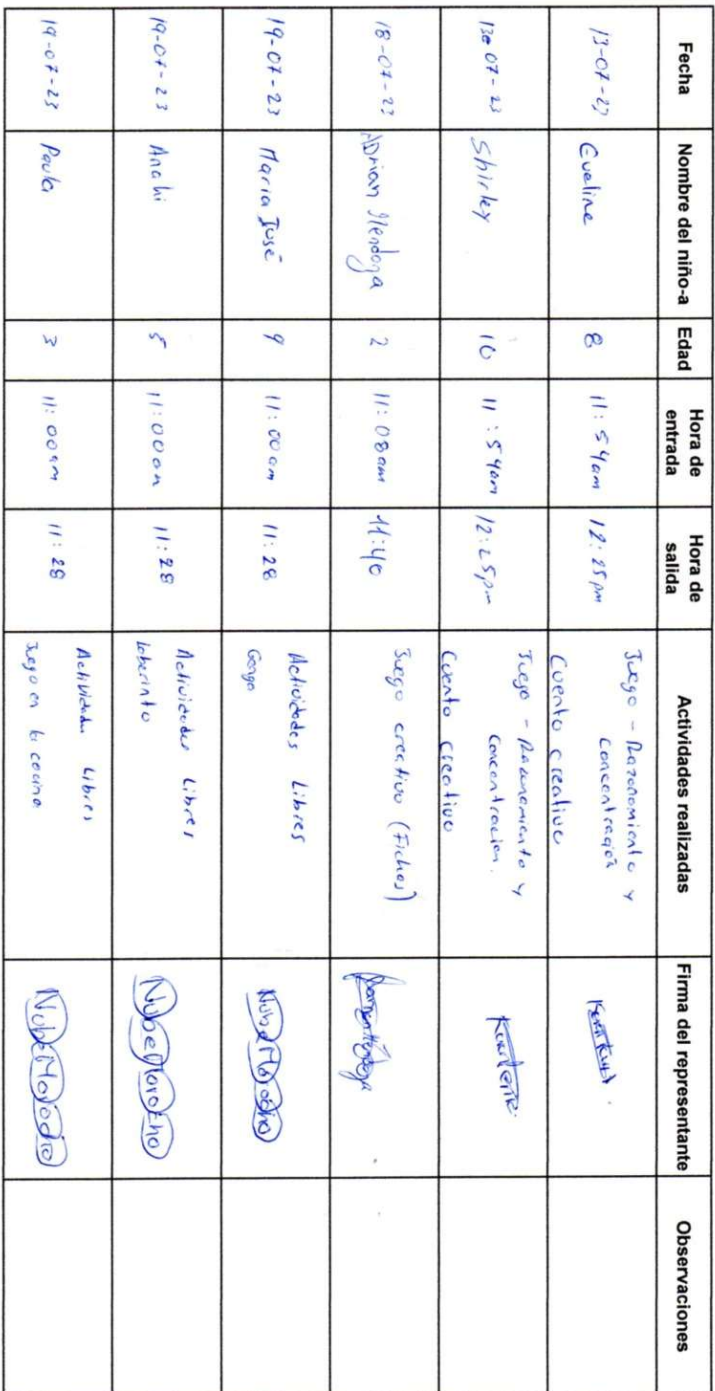 Fecha Nombre del niño-a Edad Hora de entrada Hora de salida Actividades realizadas Firma del representante Observaciones
13-07-23 Eveline 8 11:54am 12:25pm Juego - Razonamiento y
concentración
Cuento creativo
13-07-23 Shirley 10 11:54am 12:25pm Juego - Razonamiento y
Concentracion.
Cuento creativo
18-07-23 ADrian Mendoza 2 11:08am 11:40 Juego creativo (Fichas)
19-07-23 Maria José 9 11:00am 11:28 Actividades Libres
19-07-23 Anahi 5 11:00am 11:28 Actividades Libres
laberinto
Nube Morocho
19-07-23 Paula 3 11:00am 11:28 Actividades Libres
Juego en la cocina
Nube Morocho